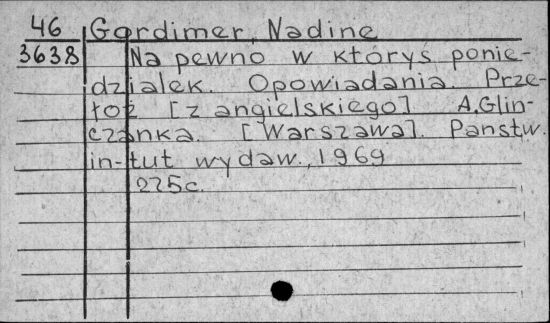 46 Gordimer, Nadine
3638 Na pewno w którys ponie-
dzialek. Opowiadania. Prze-
toż [z angielskiego] A.Glin-
czanka. [Warszawa]. Panstw.
in-tut wydaw., 1969
225c.